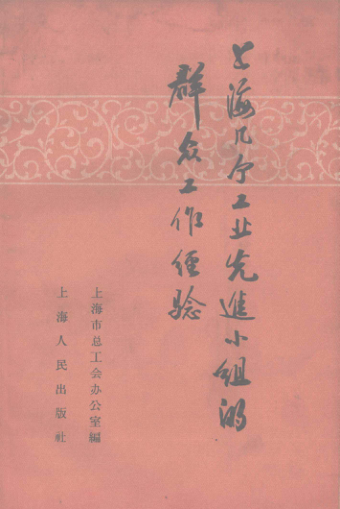 上海几个工业先進小组的
群众工作经验
上海市总工会办公室編
上海人民出版社